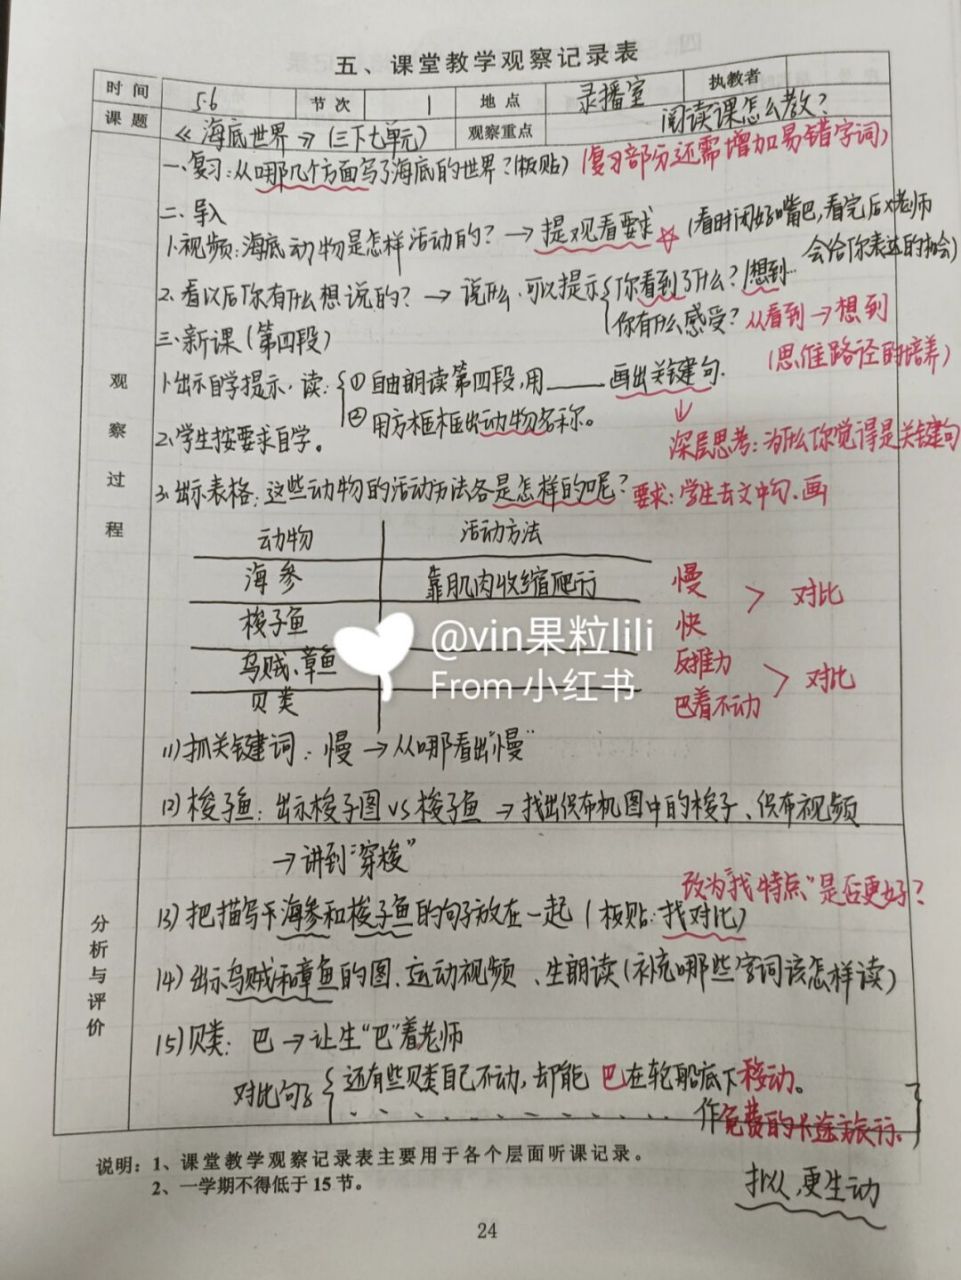 五、课堂教学观察记录表
时间 5.6 节次 1 地点 录播室 执教者
课题 《海底世界》(三下七单元) 观察重点 阅读课怎么教?
一、复习:从哪几个方面写了海底的世界?(板贴) (复习部分还需增加易错字词)
二、导入
1.视频:海底动物是怎样活动的? → 提观看要求 ☆ (看时闭好嘴巴,看完后老师
会给你表达的机会)
2.看以后你有什么想说的? → 说什么、可以提示 你看到了什么?想到…
你有什么感受? 从看到→想到
三、新课(第四段) (思维路径的培养)
观察过程
1.出示自学提示.读: ①自由朗读第四段,用____画出关键句.
②用方框框出动物名称。
2.学生按要求自学。 深层思考:为什么你觉得是关键句
3.出示表格:这些动物的活动方法各是怎样的呢? 要求:学生去文中勾.画
动物 活动方法
海参 靠肌肉收缩爬行 慢
> 对比
梭子鱼 快
@vin果粒lili
乌贼、章鱼 反推力
From 小红书
> 对比
贝类 巴着不动
11)抓关键词:慢→从哪看出"慢"
12)梭子鱼:出示梭子图 vs 梭子鱼 → 找出织布机图中的梭子、织布视频
→讲到"穿梭"
改为"找特点"是否更好?
分析与评价
13)把描写干海参和梭子鱼的句子放在一起(板贴:找对比)
14)出示乌贼和章鱼的图、运动视频、生朗读(补充哪些字词该怎样读)
15)贝类:巴→让生"巴"着老师
对比句子 还有些贝类自己不动,却能 巴在轮船底下移动。
作免费的长途旅行.
拟人,更生动
说明:1、课堂教学观察记录表主要用于各个层面听课记录。
2、一学期不得低于15节。
24